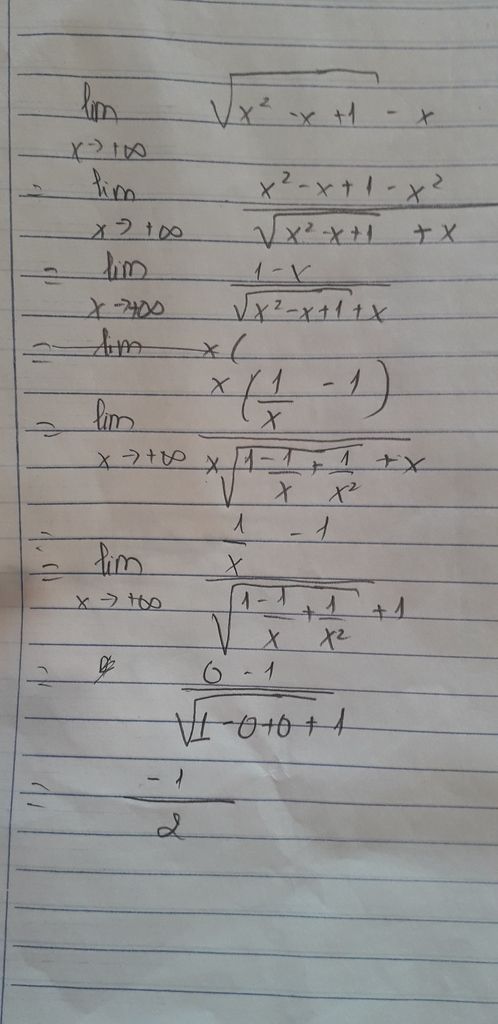 lim x→+∞ √(x² -x +1) - x
= lim x→+∞ (x² - x + 1 - x²)/(√(x² -x+1) + x)
= lim x→+∞ (1 - x)/(√(x² -x+1) + x)
= lim x (
= lim x→+∞ x(1/x - 1)/(x√(1 - 1/x + 1/x²) + x)
= lim x→+∞ (1/x - 1)/(√(1 - 1/x + 1/x²) + 1)
= (0 - 1)/(√(1 - 0 + 0) + 1)
= -1/2